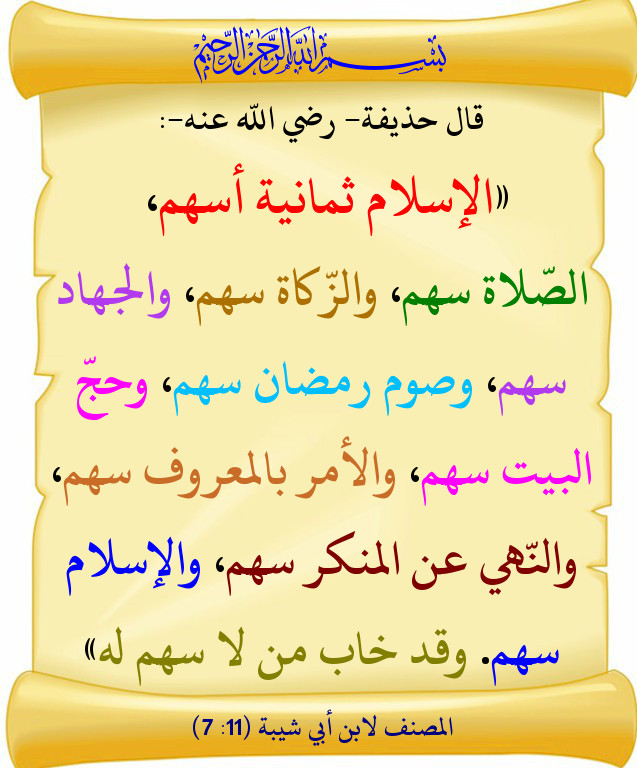 بسم الله الرحمن الرحيم
قال حذيفة- رضي الله عنه-:
«الإسلام ثمانية أسهم،
الصّلاة سهم، والزّكاة سهم، والجهاد
سهم، وصوم رمضان سهم، وحجّ
البيت سهم، والأمر بالمعروف سهم،
والنّهي عن المنكر سهم، والإسلام
سهم. وقد خاب من لا سهم له»
المصنف لابن أبي شيبة (11: 7)